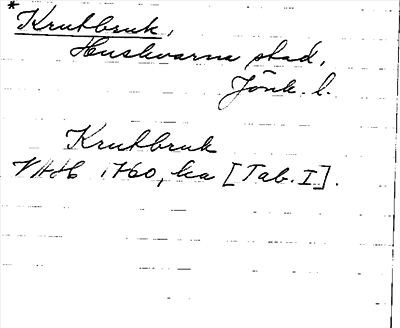 *Krutbruk,
Huskvarna stad,
Jönk. l.
Krutbruk
VAH 1760, ka [Tab. I].